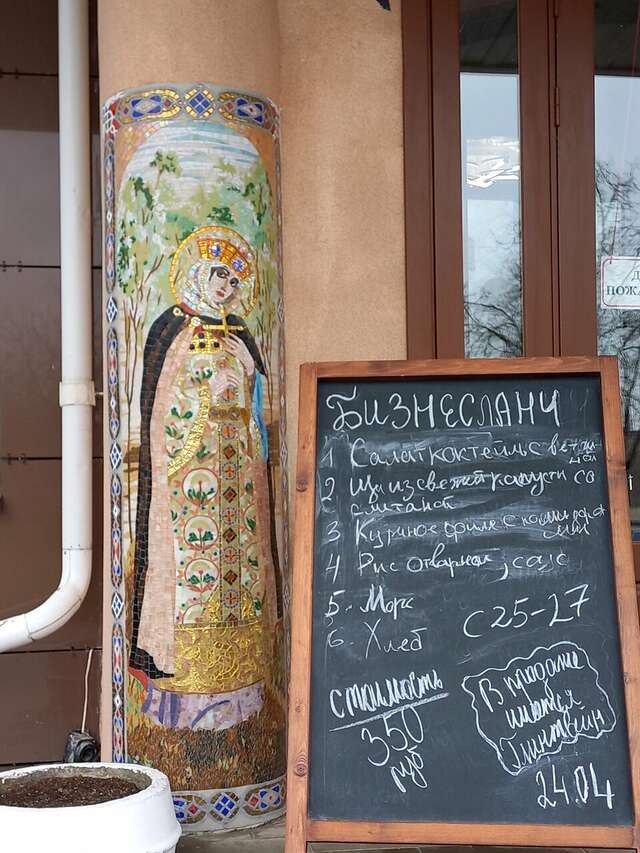 БИЗНЕСЛАНЧ
1 Салат коктейль с ветчиной
2 Щи из свежей капусты со
сметаной
3 Куриное филе с помидорами
4 Рис отварной, соус
5. Морс
6. Хлеб
с 25-27
стоимость
350
руб
В продаже
имеются
24.04
Д
ПОЖА